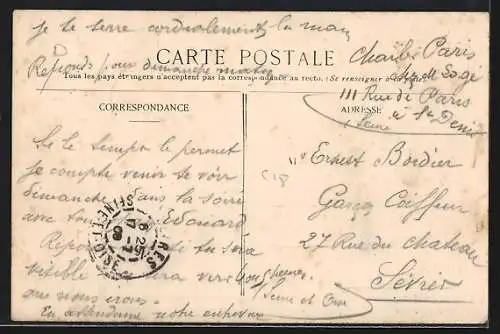 je te serre cordialement la main
CARTE POSTALE
Réponds pour dimanche matin
Tous les pays étrangers n'acceptent pas la correspondance au recto. (Se renseigner à la
Paris
111 Rue de Paris
à St Denis
Seine
CORRESPONDANCE
ADRESSE
Si le temps le permet
je compte venir te voir
dimanche dans la soirée
avec Edouard
Ernest Bordier
Garçon Coiffeur
27 Rue du chateau
Sèvres
Seine et Oise
si tu sera
visible sera vers
que nous irons.
En attendant notre entrevue